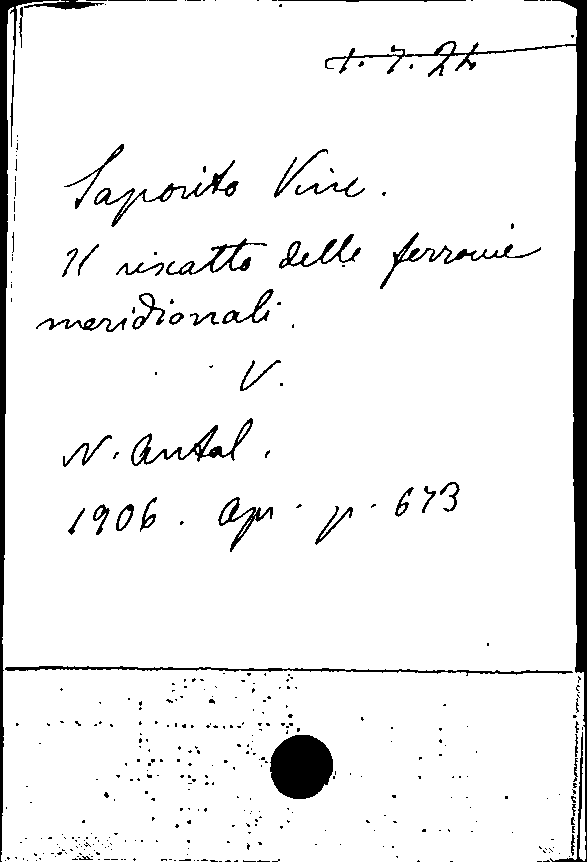 1.7.24
Saporito Vinc.
Il riscatto delle ferrovie
meridionali.
V.
N. Antol.
1906. Apr. p. 673